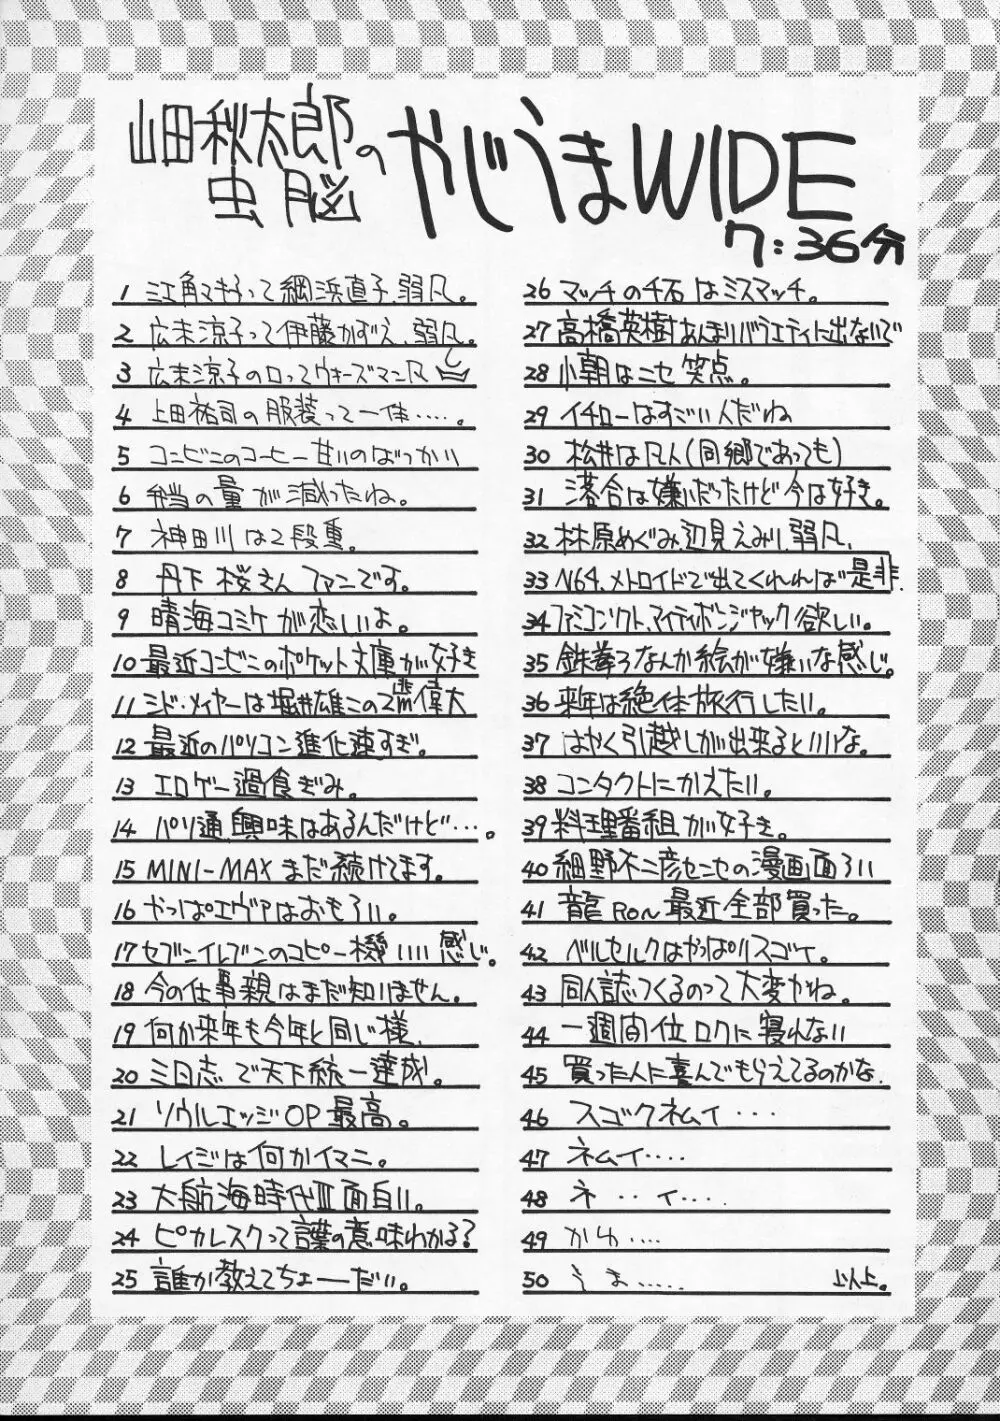 山田秋太郎の
虫脳
やじうまWIDE
7:36分
1 江角マキ子って綱浜直子、弱凡。
2 広末涼子って伊藤かずえ、弱凡。
3 広末涼子の口ってウォーズマン凡
4 上田祐司の服装って一体‥‥。
5 コンビニのコーヒー甘いのばっかい
6 弁当の量が減ったね。
7 神田川は2段重。
8 丹下桜さん ファンです。
9 晴海コミケが恋しいよ。
10 最近コンビニのポケット文庫が好き
11 シド・メイヤーは堀井雄二の2歯偉大
12 最近のパソコン進化速すぎ。
13 エロゲー過食ぎみ。
14 パソ通興味はあるんだけど…。
15 MINI-MAXまだ続けてます。
16 やっぱエヴァはおもろい。
17 セブンイレブンのコピー機いい感じ。
18 今の仕事親はまだ知りません。
19 何か来年も今年と同じ様、
20 三国志で天下統一達成。
21 ソウルエッジOP最高。
22 レイジは何かイマニ。
23 大航海時代III面白い。
24 ピカレスクって言葉の意味わかる?
25 誰か教えてちょーだい。
26 マッチの千石はミスマッチ。
27 高橋英樹あんまりバラエティに出ないで
28 小朝はニセ笑点。
29 イチローはすごい人だね
30 松井は凡人(同郷であっても)
31 落合は嫌いだったけど今は好き。
32 林原めぐみ、辺見えみり、弱凡、
33 N64、メトロイドで出てくれれば是非.
34 ファミコンソフト、マイティボンジャック欲しい。
35 鉄拳3なんか絵が嫌いな感じ。
36 来年は絶体旅行したい。
37 はやく引越しが出来るといいな。
38 コンタクトにかえたい。
39 料理番組が好き。
40 細野不二彦センセの漫画面ろい
41 龍RON最近全部買った。
42 ベルセルクはやっぱりスゴイ。
43 同人誌つくるのって大変かね。
44 一週間位ロクに寝れない
45 買った人に喜んでもらえてるのかな.
46 スゴクネムイ・・・
47 ネムイ‥‥
48 ネ‥ィ‥‥
49 かゆ‥‥
50 うま‥‥‥ 以上。